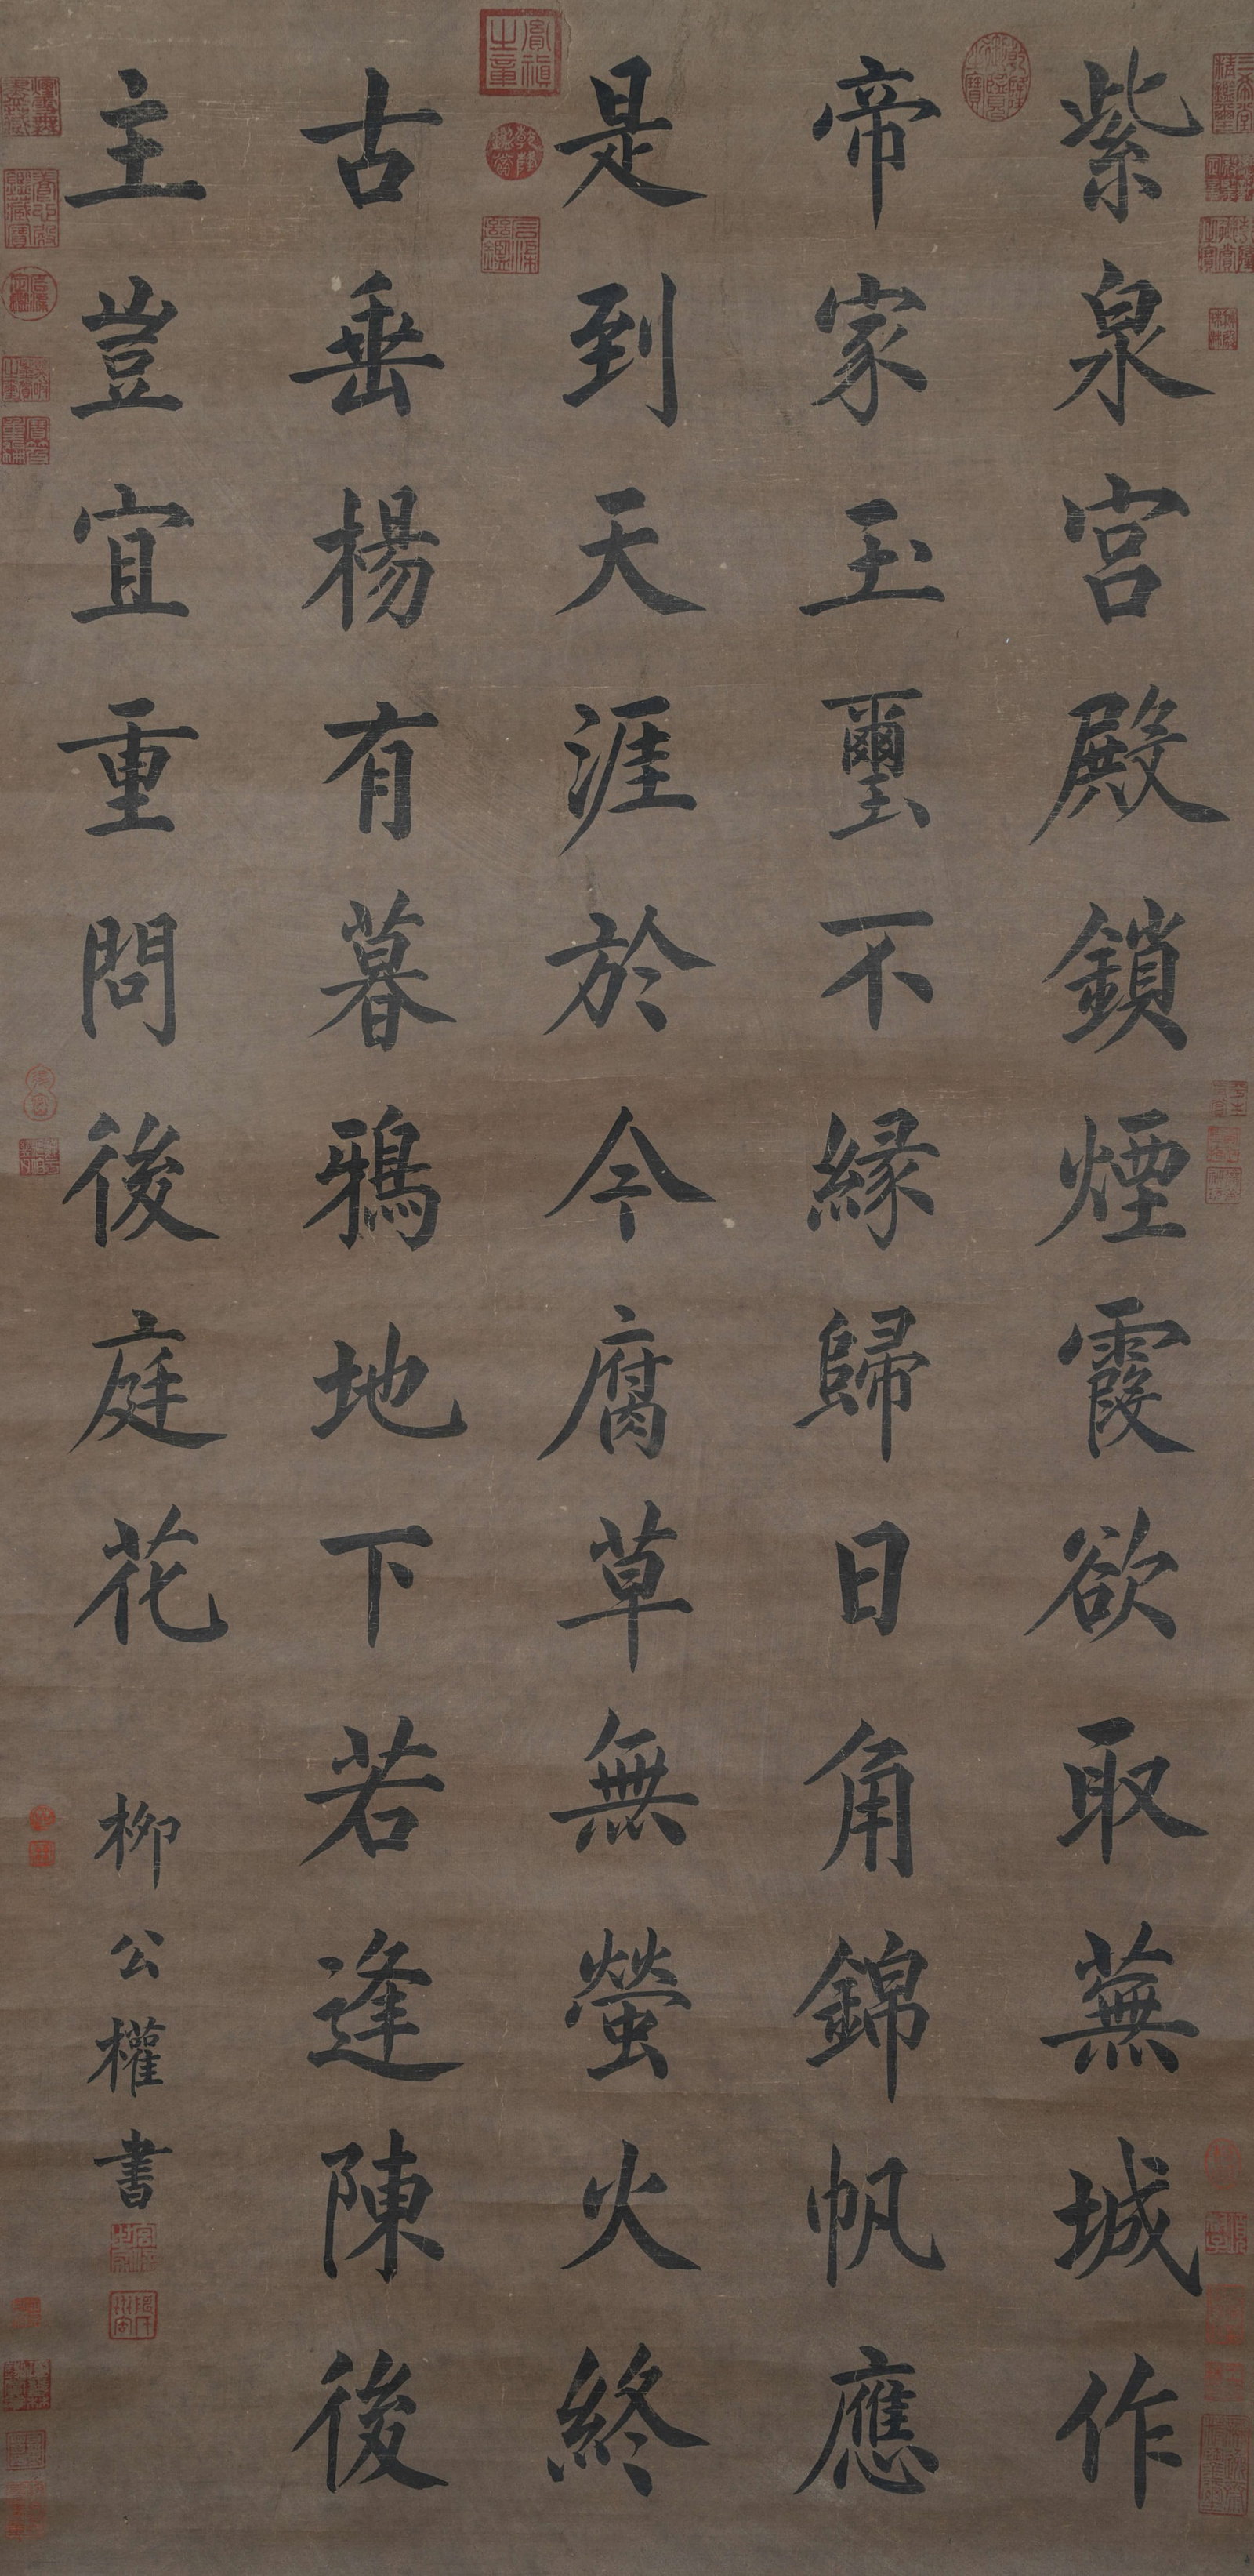 紫泉宮殿鎖煙霞欲取蕪城作
帝家玉璽不緣歸日角錦帆應
是到天涯於今腐草無螢火終
古垂楊有暮鴉地下若逢陳後
主豈宜重問後庭花
柳公權書